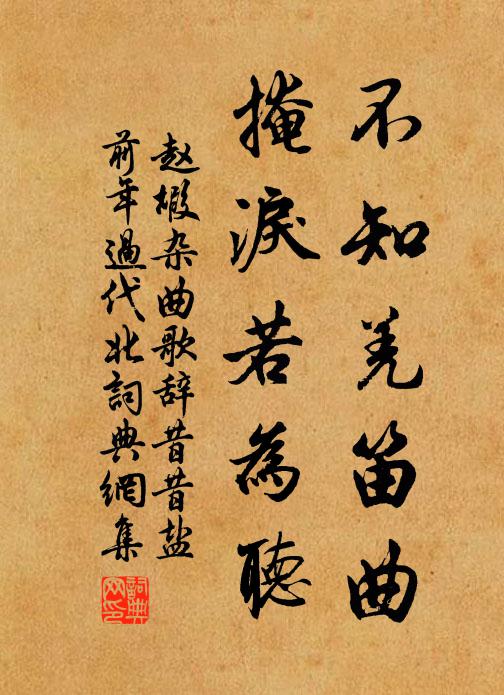 不知羌笛曲
掩淚若為聽
赵嘏杂曲歌辞昔昔盐
前年過代北詞典網集
詞典網印